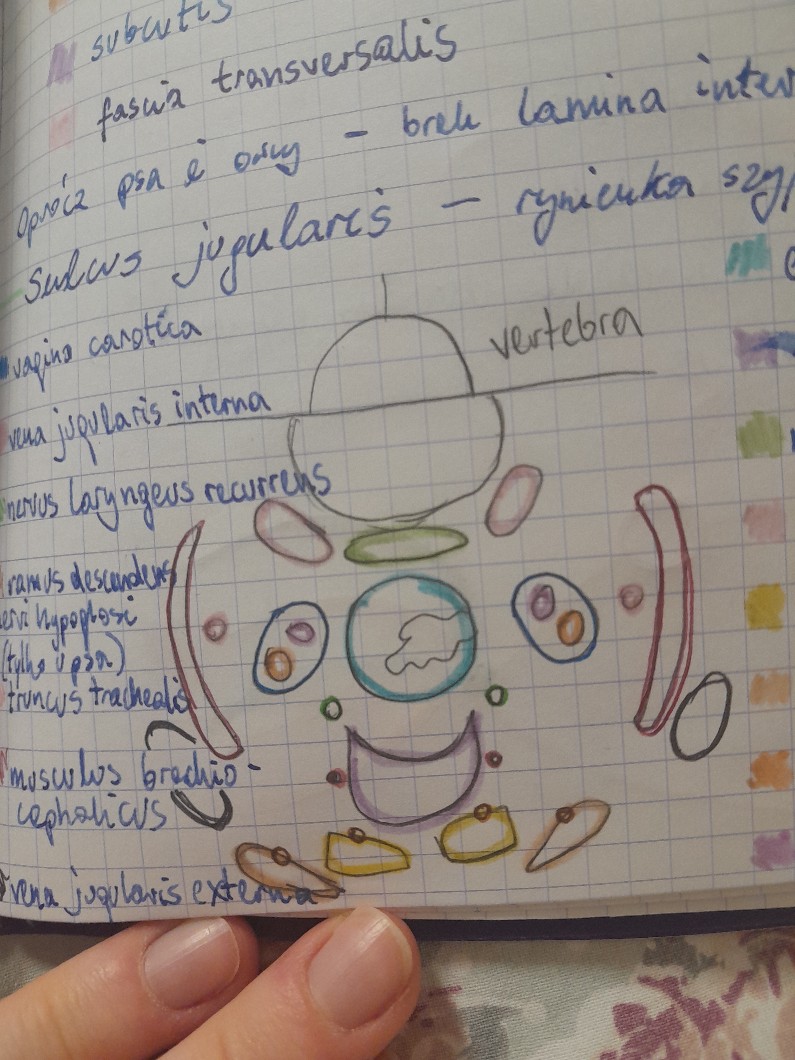 subcutis
fascia transversalis
Oprócz psa i owcy - brak lamina inter
Sulcus jugularis - rynienka szy
vagina carotica
vertebra
vena jugularis interna
nervus laryngeus recurrens
ramus descendens
nervi hypoglosi
(tylko u psa)
truncus trachealis
musculus brachio-
cephalicus
vena jugularis externa